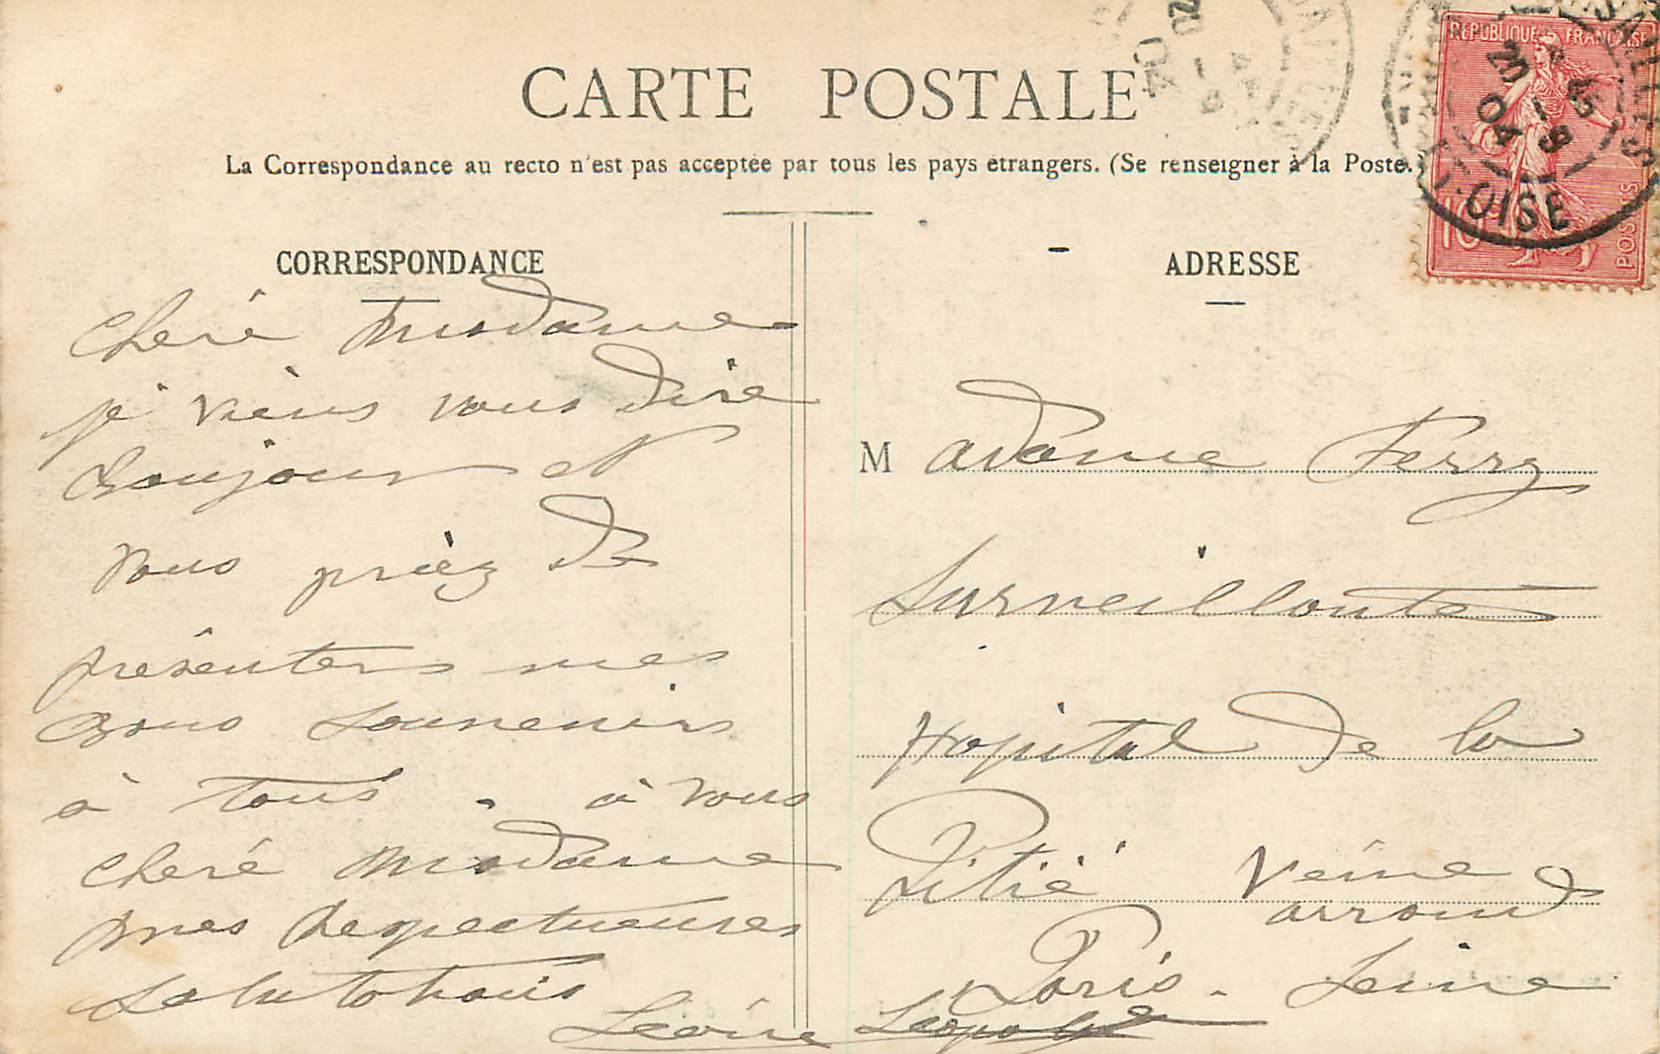 CARTE POSTALE
La Correspondance au recto n'est pas acceptée par tous les pays étrangers. (Se renseigner à la Poste.)
CORRESPONDANCE
cheré Madame
je viens vous dire
Bonjour et
vous prièz de
présenters mes
Bons Souvenirs
à tous . à vous
cheré Madame
mes Respectueuses
Salutations
Léonie Léopold
ADRESSE
Madame Ferry
Surveillante
Hopital de la
Pitié Vème
arrond
Paris. Seine
REPUBLIQUE FRANÇAISE
POSTES
10c
20 04
OISE